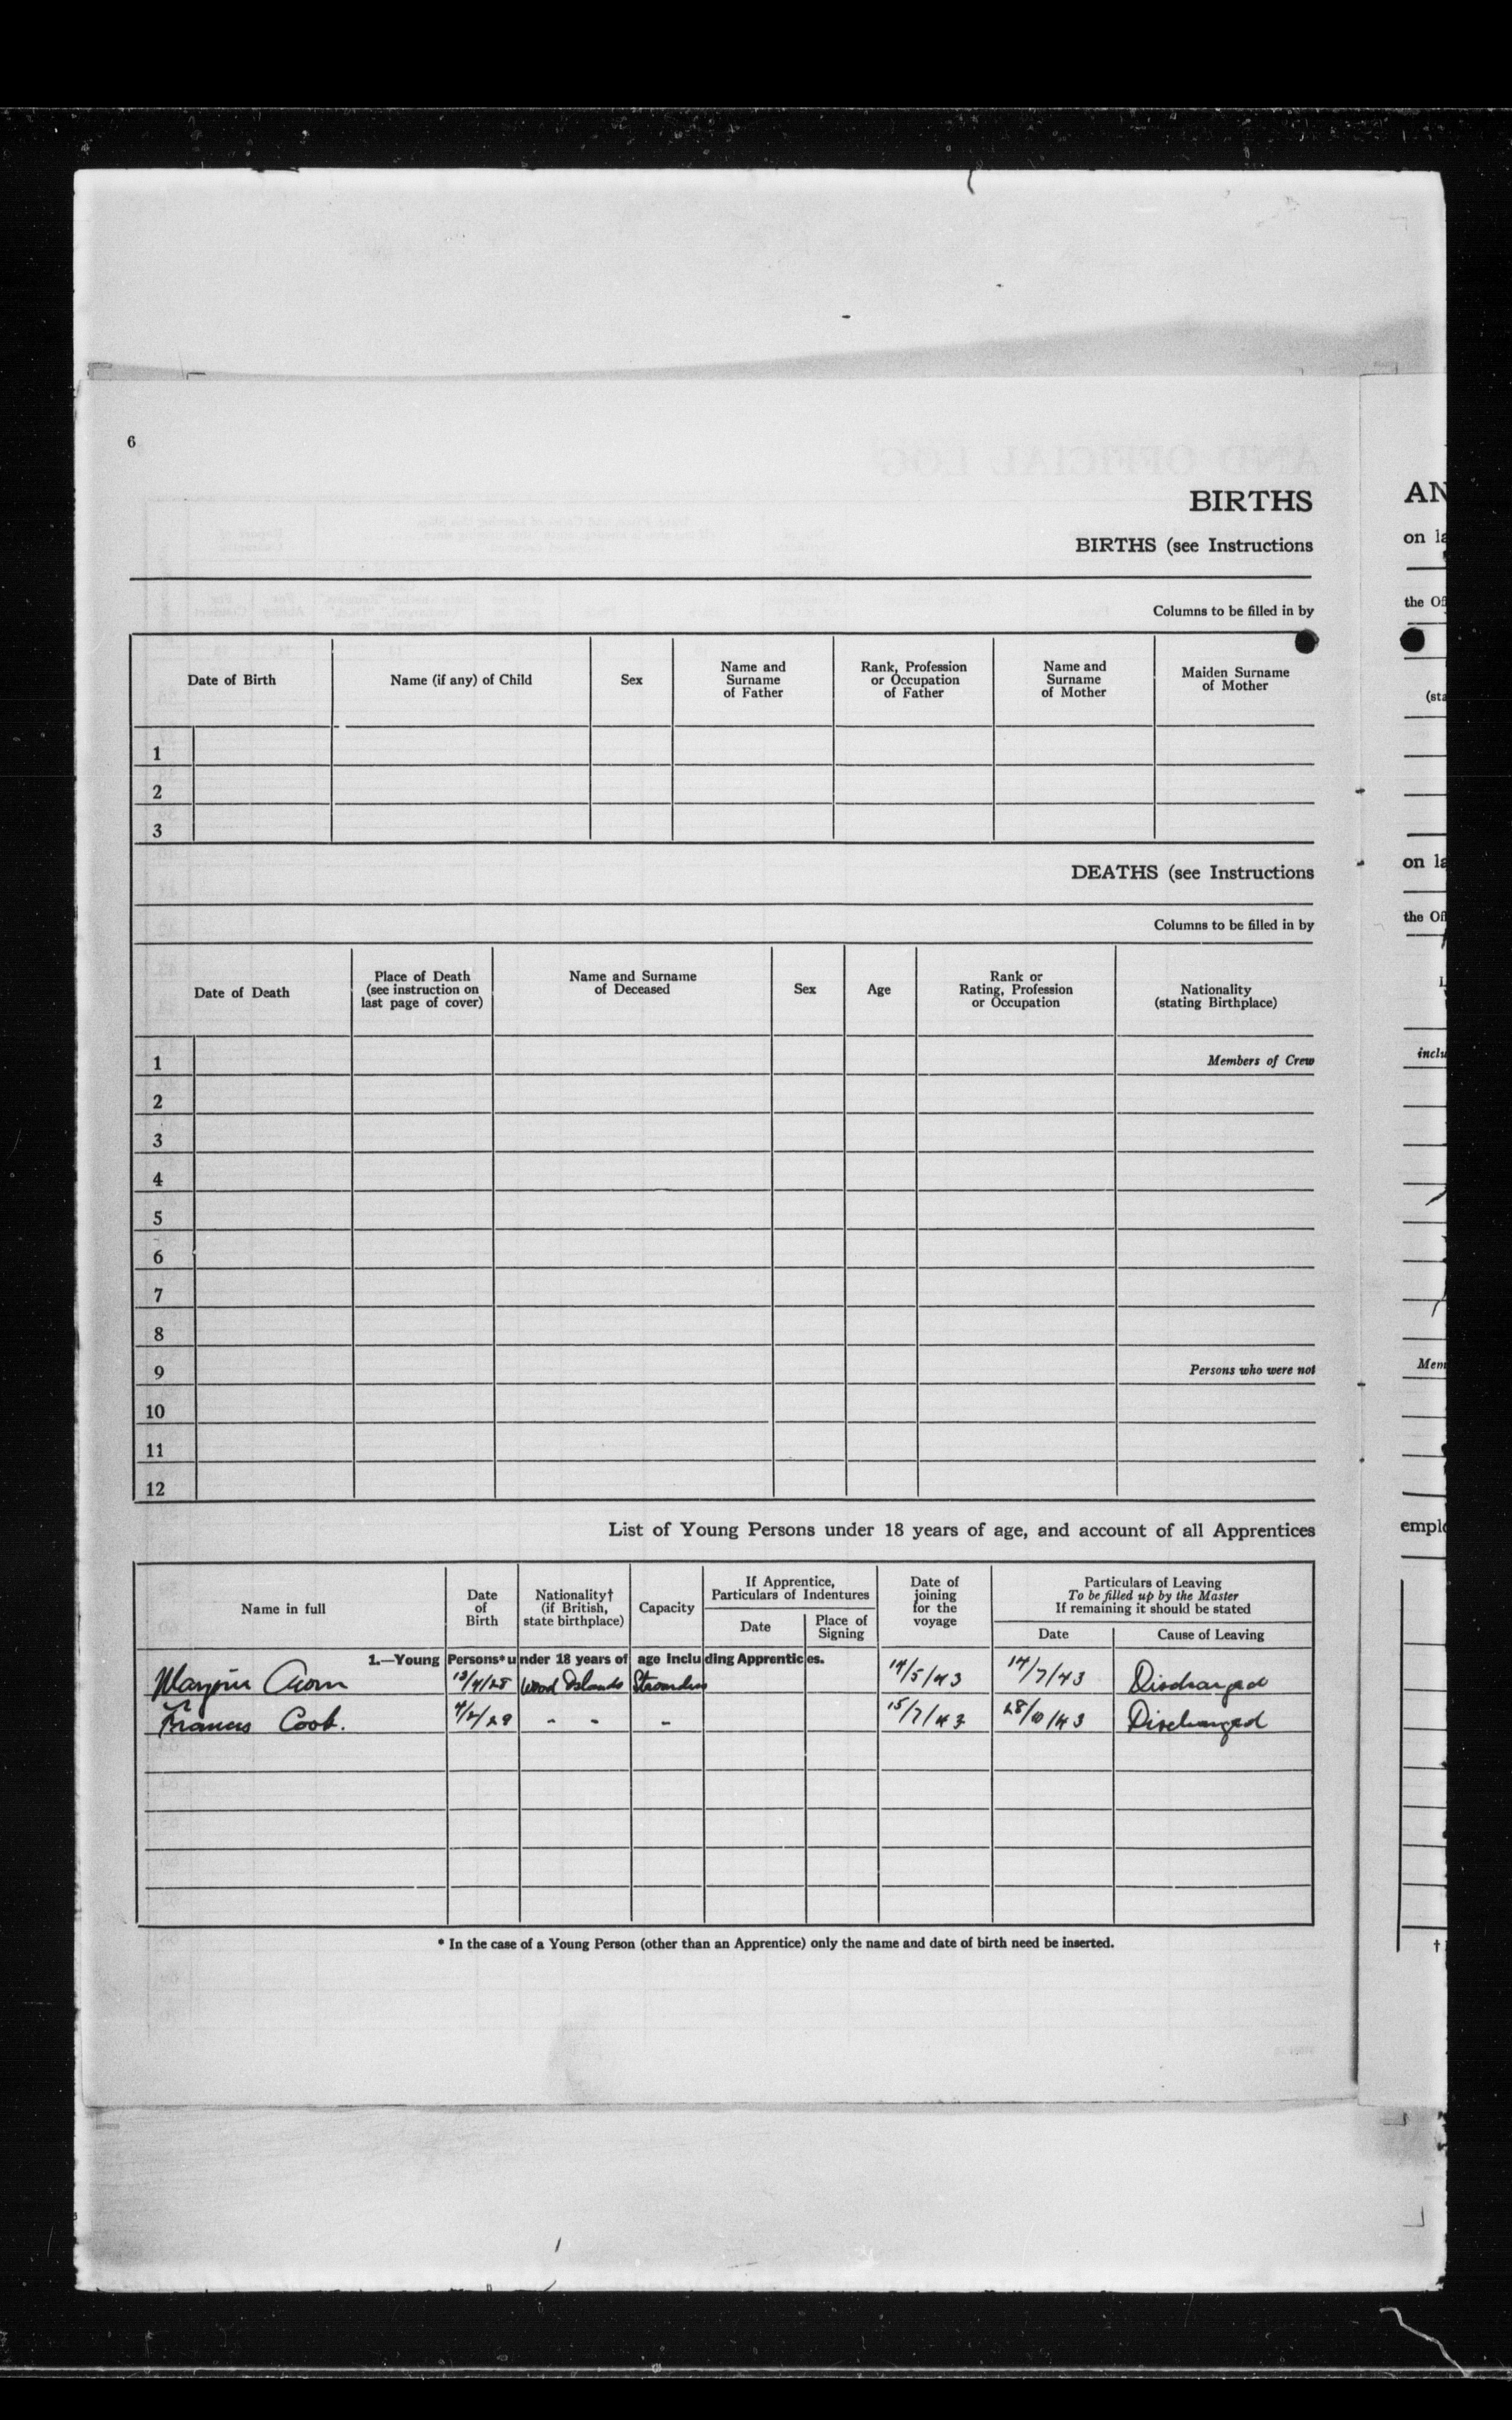 6
BIRTHS
BIRTHS (see Instructions
Columns to be filled in by
Date of Birth
Name (if any) of Child
Sex
Name and Surname of Father
Rank, Profession or Occupation of Father
Name and Surname of Mother
Maiden Surname of Mother
1
2
3
DEATHS (see Instructions
Columns to be filled in by
Date of Death
Place of Death (see instruction on last page of cover)
Name and Surname of Deceased
Sex
Age
Rank or Rating, Profession or Occupation
Nationality (stating Birthplace)
1 Members of Crew
2
3
4
5
6
7
8
9 Persons who were not
10
11
12
List of Young Persons under 18 years of age, and account of all Apprentices
Name in full
Date of Birth
Nationality† (if British, state birthplace)
Capacity
If Apprentice, Particulars of Indentures
Date
Place of Signing
Date of joining for the voyage
Particulars of Leaving
To be filled up by the Master
If remaining it should be stated
Date
Cause of Leaving
1.—Young Persons* under 18 years of age Including Apprentices.
Wood Islands 14/5/43 14/7/43 Discharged
Francis Cook. - - - 15/7/43 28/10/43 Discharged
* In the case of a Young Person (other than an Apprentice) only the name and date of birth need be inserted.
AN
on la
the Of
(sta
on la
the Of
inclu
Mem
emplo
†